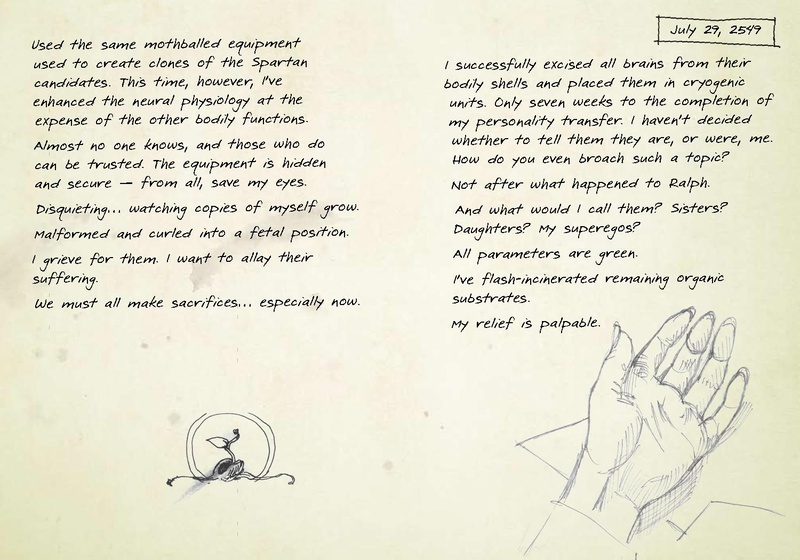 Used the same mothballed equipment
used to create clones of the Spartan
candidates. This time, however, I've
enhanced the neural physiology at the
expense of the other bodily functions.
Almost no one knows, and those who do
can be trusted. The equipment is hidden
and secure — from all, save my eyes.
Disquieting... watching copies of myself grow.
Malformed and curled into a fetal position.
I grieve for them. I want to allay their
suffering.
We must all make sacrifices... especially now.
July 29, 2549
I successfully excised all brains from their
bodily shells and placed them in cryogenic
units. Only seven weeks to the completion of
my personality transfer. I haven't decided
whether to tell them they are, or were, me.
How do you even broach such a topic?
Not after what happened to Ralph.
And what would I call them? Sisters?
Daughters? My superegos?
All parameters are green.
I've flash-incinerated remaining organic
substrates.
My relief is palpable.